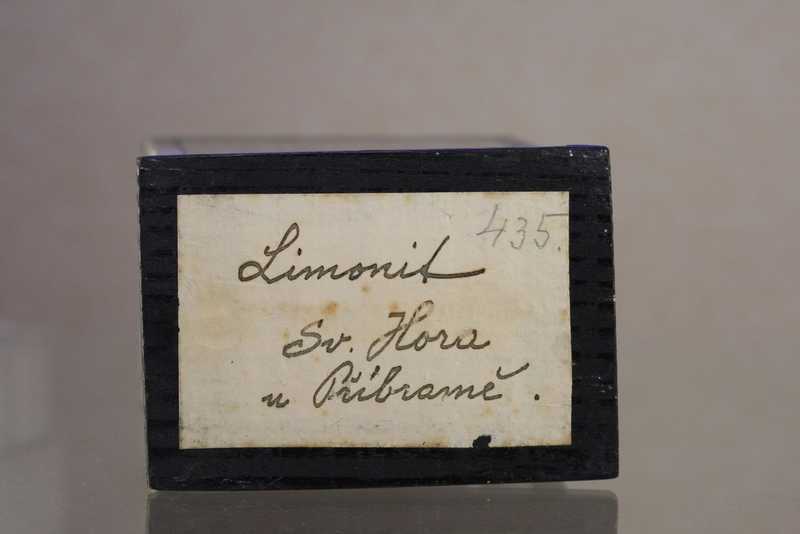 435.
Limonit
Sv. Hora
u Příbramě.